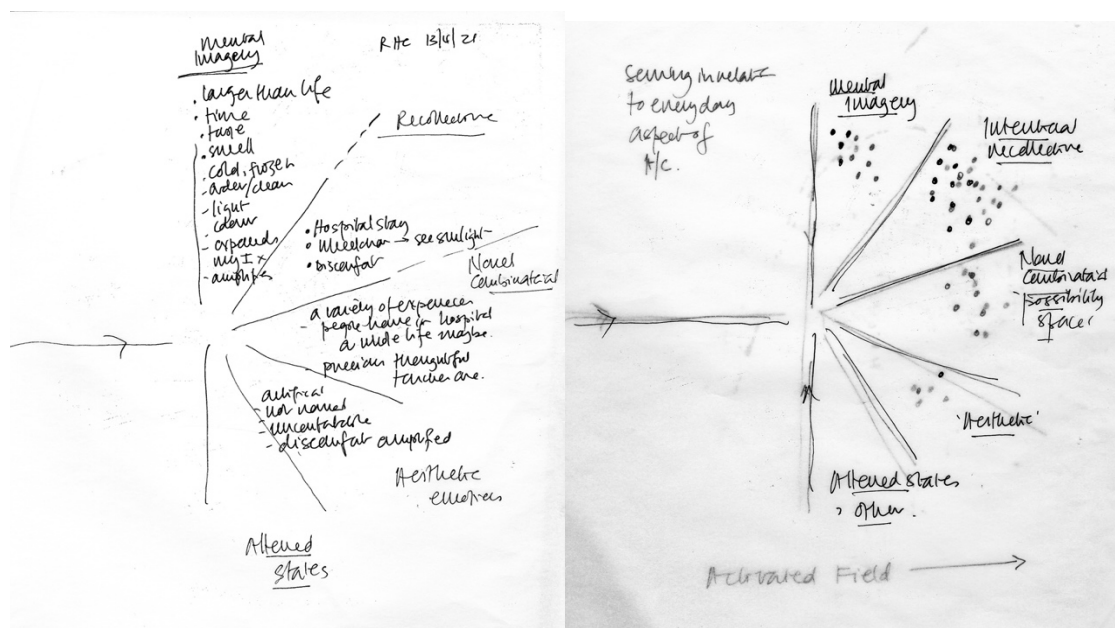 Mental
Imagery
RHC 13/4/21
. larger than life
. time
. taste
. smell
. cold, frozen
- order/clean
- light
colour
- expands
my I x
- amplifies
Recollective
. Hospital stay
o Wheelchair → see sunlight
. Discomfort
Novel
Combinatorial
a variety of experiences
- people name in hospital
a whole life maybe.
- precious thoughtful
artificial
- not named
- uncomfortable
- discomfort amplified
Aesthetic
emotions
Altered
states
Seming in relat
to everyday
aspect of
A/C.
Mental
Imagery
Intentional
recollective
Novel
Combinatorial
'possibility
space'
'Aesthetic'
Altered states
, other.
Activated Field →